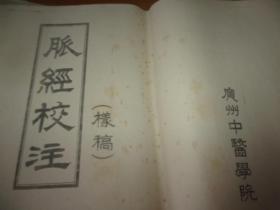 脈經校注
(樣稿)
廣州中醫學院